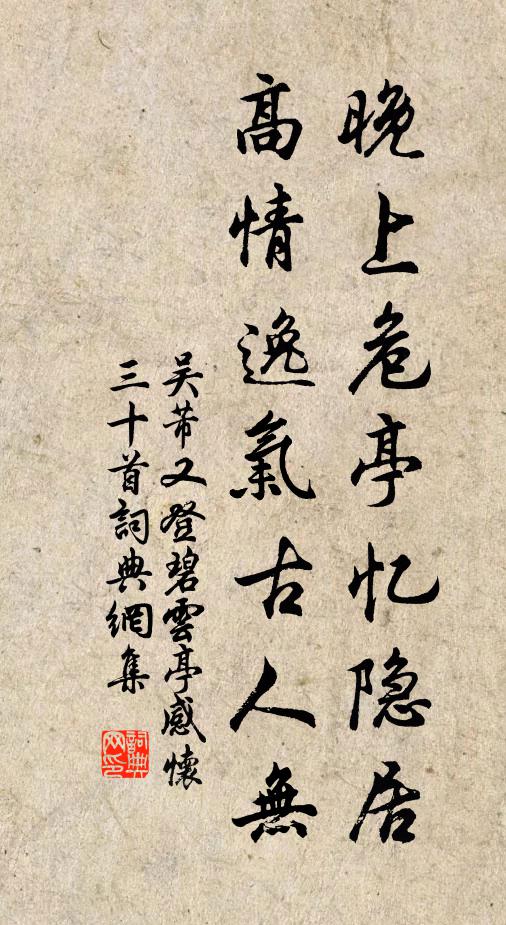 晚上危亭忆隐居
高情逸氣古人無
吴芾又登碧雲亭感懷
三十首詞典網集
詞典网印